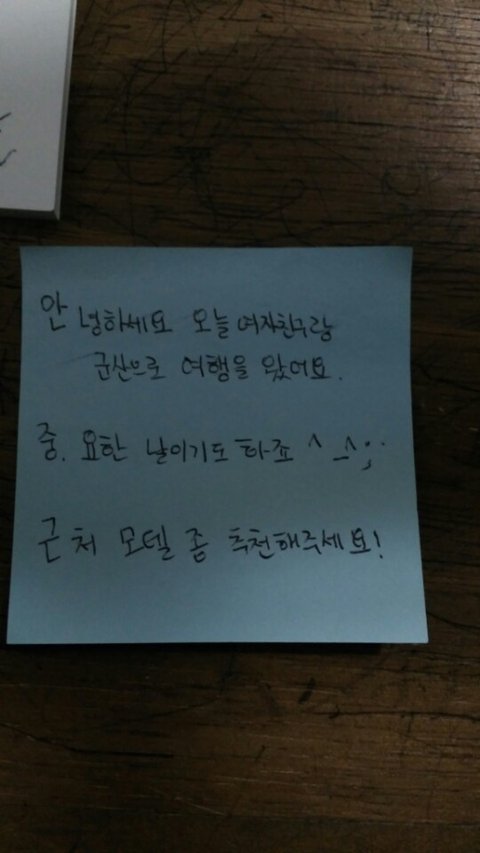 안녕하세요 오늘 여자친구랑
군산으로 여행을 왔어요.
중.요한 날이기도 하죠 ^_^;;
근처 모델 좀 추천해주세요!